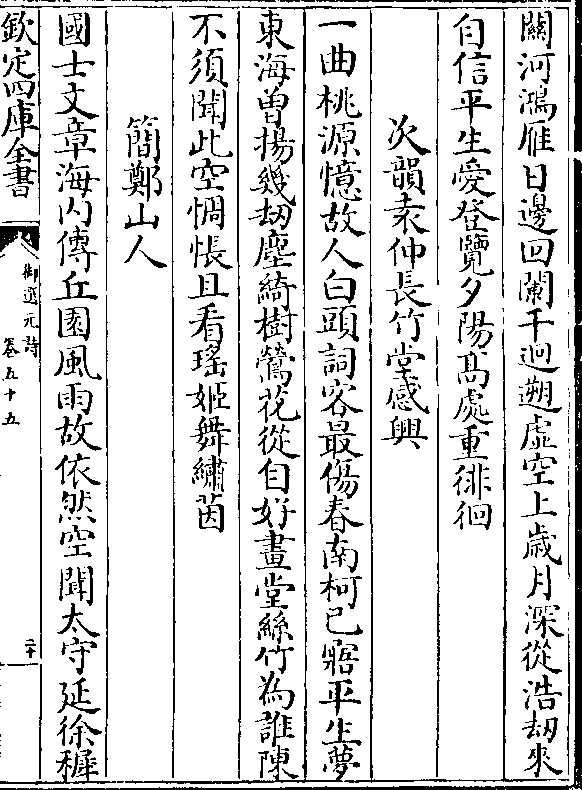 關河鴻雁日邊回闌干迥遡虛空上歲月深從浩刼來
自信平生愛登覽夕陽髙處重徘徊
次韻袁仲長竹堂感興
一曲桃源憶故人白頭詞客最傷春南柯已寤平生夢
東海曽揚幾刼塵綺樹鶯花從自好畫堂絲竹為誰陳
不須聞此空惆悵且看瑤姬舞繡茵
簡鄭山人
國士文章海内傳丘園風雨故依然空聞太守延徐穉
欽定四庫全書
御選元詩
卷五十五
二十